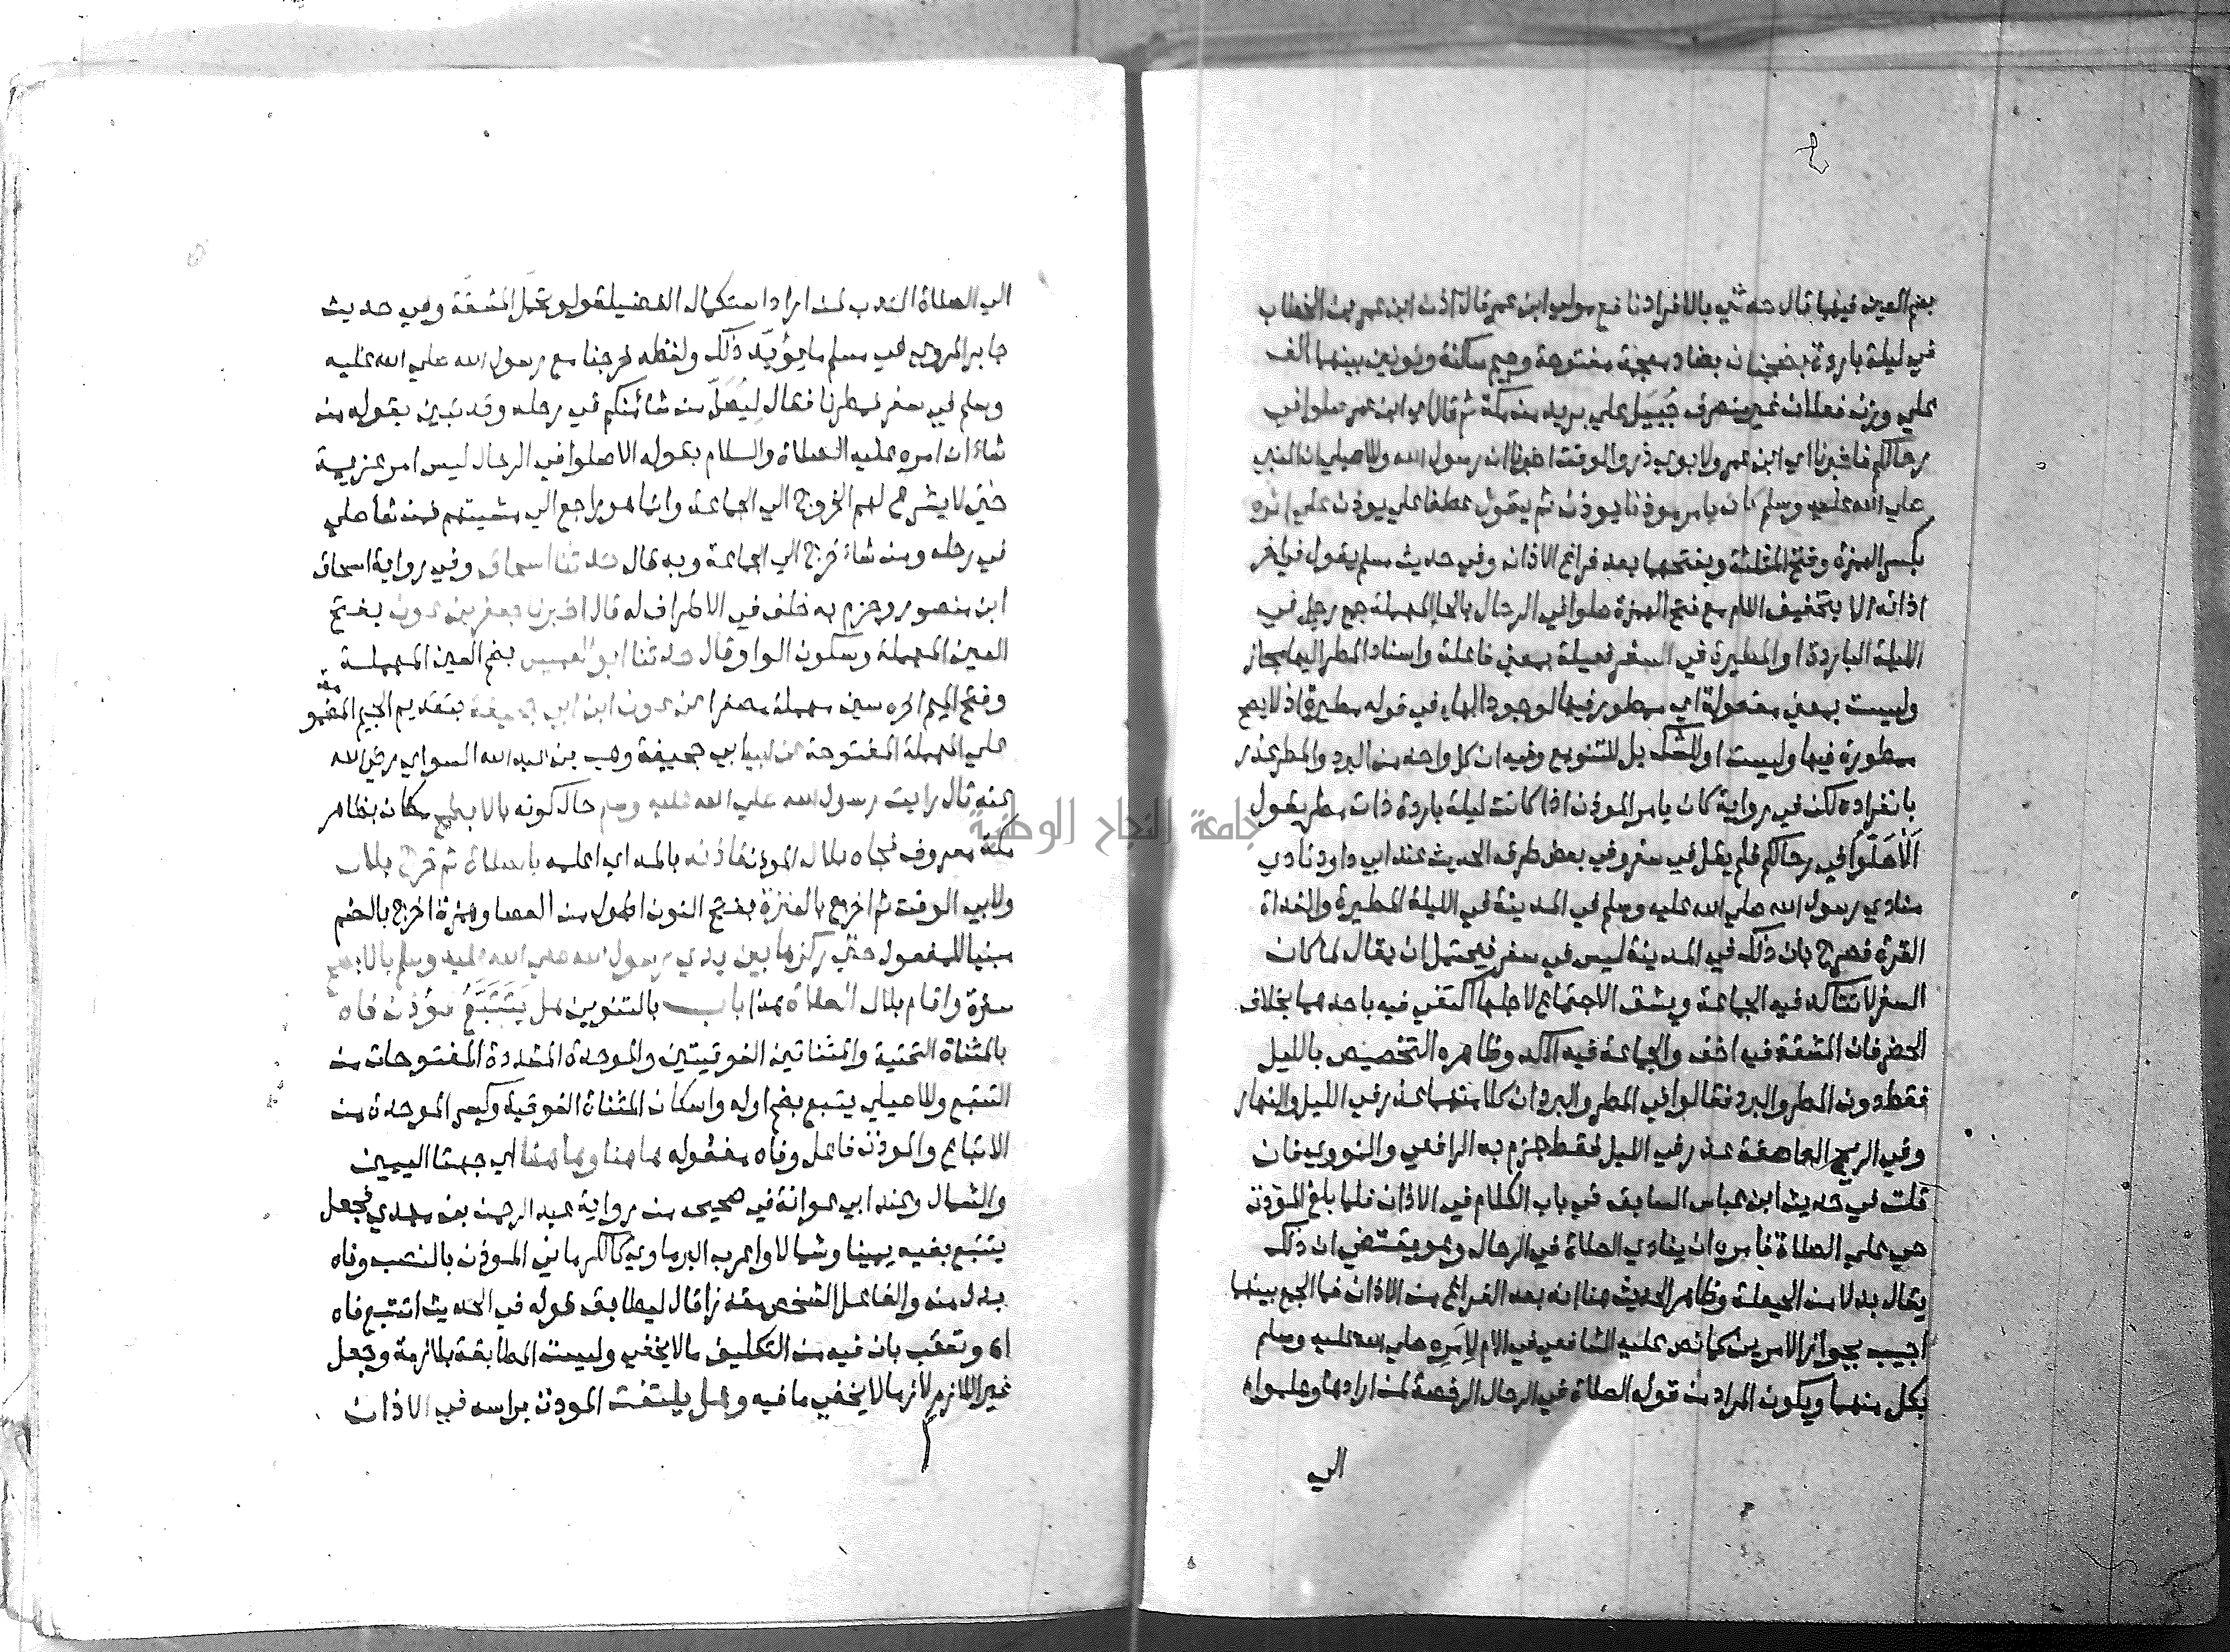 بضم العين فيهما قال حدثني بالافراد نافع مولى ابن عمر قال أذن ابن عمر بن الخطاب
في ليلة باردة بضجنان بضاد معجمة مفتوحة وجيم ساكنة ونونين بينهما الف
علي وزن فعلان غير منصرف جُبَيل علي بريد من مكة ثم قال اي ابن عمر صلوا في
رحالكم فاخبرنا اي ابن عمر ولابوي ذر والوقت اخبرنا ان رسول الله وللاصيلي ان النبي
صلي الله عليه وسلم كان يامر موذنا يوذن ثم يقول عطفا علي يوذن علي اثره
بكسر الهمزة وفتح المثلثة وبفتحهما بعد فراغ الاذان وفي حديث مسلم يقول في اخر
اذانه الا بتخفيف اللام مع فتح الهمزة صلوا في الرحال بالحا المهملة جمع رحل في
الليلة الباردة او المطيرة في السفر فعيلة بمعني فاعلة واسناد المطر اليها مجاز
وليست بمعني مفعولة اي ممطور فيها لوجود الهاء في قوله مطيرة اذ لا يصح
ممطورة فيها وليست او للشك بل للتنويع وفيه ان كل واحد من البرد والمطر عذر
بانفراده لكن في رواية كان يامر الموذن اذا كانت ليلة باردة ذات مطر يقول
اَلاَصَلّوا في رحالكم فلم يقل في سفر وفي بعض طرق الحديث عند ابي داود نادي
منادي رسول الله صلي الله عليه وسلم في المدينة في الليلة المطيرة والغداة
القرة فصرح بان ذلك في المدينة ليس في سفر فيحتمل ان يقال لما كان
السفر لا تتاكد فيه الجماعة ويشق الاجتماع لاجلها اكتفي فيه باحدهما بخلاف
الحضر فان المشقة فيه اخف والجماعة فيه اكد وظاهره التخصيص بالليل
فقط دون المطر والبرد فقالوا في المطر والبرد ان كلا منهما عذر في الليل والنهار
وفي الريح العاصفة عذر في الليل فقط جزم به الرافعي والنووي فان
قلت في حديث ابن عباس السابق في باب الكلام في الاذان فلما بلغ المؤذن
حي علي الصلاة فأمره ان ينادي الصلاة في الرحال وهو يقتضي ان ذلك
يقال بدلا من الحيعلة وظاهر الحديث هنا انه بعد الفراغ من الاذان فما الجمع بينهما
اجيب بجواز الامرين كما نص عليه الشافعي في الام لأمرِه صلي الله عليه وسلم
بكل منهما ويكون المراد من قوله الصلاة في الرحال الرخصة لمن ارادها وهلموا
الي
الي الصلاة الندب لمن اراد استكمال الفضيلة ولو بحمل المشقة وفي حديث
جابر المروي في مسلم ما يؤيد ذلك ولفظه خرجنا مع رسول الله صلي الله عليه
وسلم في سفر فمطرنا فقال لِيُصَلّ من شاء منكم في رحله وقد تبين بقوله من
شاء ان امره عليه الصلاة والسلام بقوله الا صلوا في الرحال ليس امر عزيمة
حتي لا يشرع لهم الخروج الي الجماعة وانما هو راجع الي مشيتهم فمن شأ صلي
في رحله ومن شاء خرج الي الجماعة وبه قال حدثنا اسحاق وفي رواية اسحاق
ابن منصور وجزم به خلف في الاطراف له قال اخبرنا جعفر بن عون بفتح
العين المهملة وسكون الواو قال حدثنا ابو العميس بضم العين المهملة
وفتح الميم اخره سين مهملة مصغرا عن عون ابن ابي جحيفة بتقديم الجيم المضمو
مة
علي المهملة المفتوحة عن ابيه ابي جحيفة وهب بن عبد الله السواي رضي الله
عنه قال رايت رسول الله صلي الله عليه وسلم حال كونه بالابطح مكان بظاهر
مكة معروف فجاه بلال الموذن فاذنه بالمد اي اعلمه بالصلاة ثم خرج بلال
ولابي الوقت ثم اخرج بالعنزة بفتح النون اطول من العصا وهمزة اخرج بالضم
مبنيا للمفعول حتي ركزها بين يدي رسول الله صلي الله عليه وسلم بالابطح
سترة واقام بلال الصلاة هذا باب بالتنوين هل يَتَتَبَّعُ المؤذن فاه
بالمثناة التحتية والمثناتين الفوقيتين والموحدة المشددة المفتوحات من
التتبع وللاصيلي يتبع بضم اوله واسكان المثناة الفوقية وكسر الموحدة من
الاتباع والموذن فاعل وفاه مفعوله هاهنا وهاهنا اي جهتا اليمين
والشمال وعند ابي عوانة في صحيحه من رواية عبد الرحمن بن مهدي فجعل
يتتبع بفيه يمينا وشمالا واعرب البرماوي كالكرماني الموذن بالنصب وفاه
بدل منه والفاعل الشخص مقدرا قال ليطابق قوله في الحديث اتتبع فاه
اه وتعقب بان فيه من التكليف ما لا يخفي وليست المطابقة بلازمة وجعل
غير اللازم لازما لا يخفي ما فيه وهل يلتفت الموذن براسه في الاذان
جامعة النجاح الوطنية